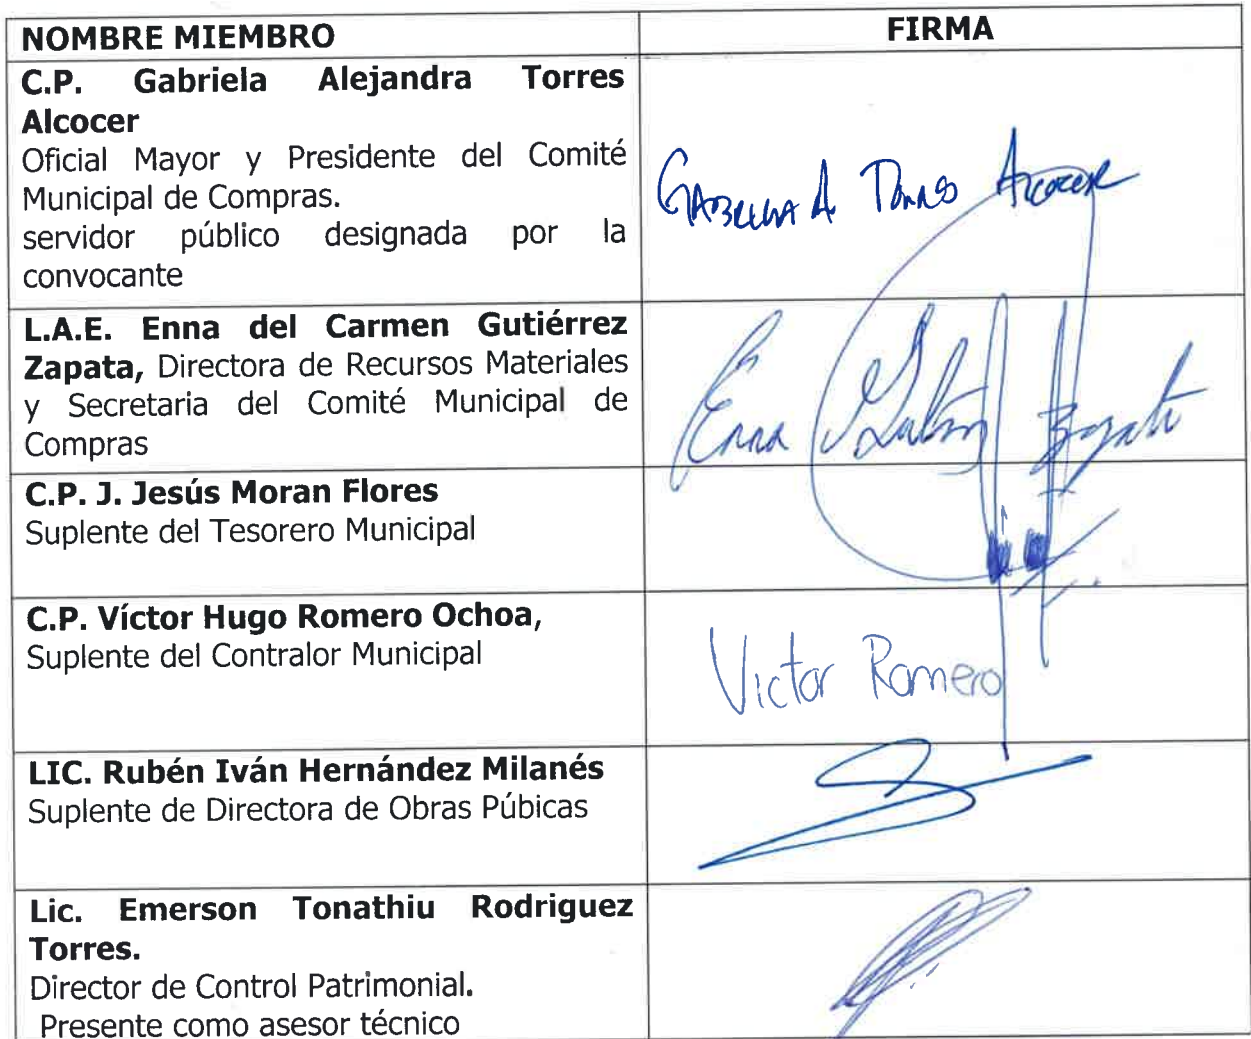 NOMBRE MIEMBRO
FIRMA
C.P. Gabriela Alejandra Torres
Alcocer
Oficial Mayor y Presidente del Comité
Municipal de Compras.
servidor público designada por la
convocante
GABRIELA A TORRES ALCOCER
L.A.E. Enna del Carmen Gutiérrez
Zapata, Directora de Recursos Materiales
y Secretaria del Comité Municipal de
Compras
Enna Gutiérrez Zapata
C.P. J. Jesús Moran Flores
Suplente del Tesorero Municipal
C.P. Víctor Hugo Romero Ochoa,
Suplente del Contralor Municipal
Victor Romero
LIC. Rubén Iván Hernández Milanés
Suplente de Directora de Obras Púbicas
Lic. Emerson Tonathiu Rodriguez
Torres.
Director de Control Patrimonial.
Presente como asesor técnico